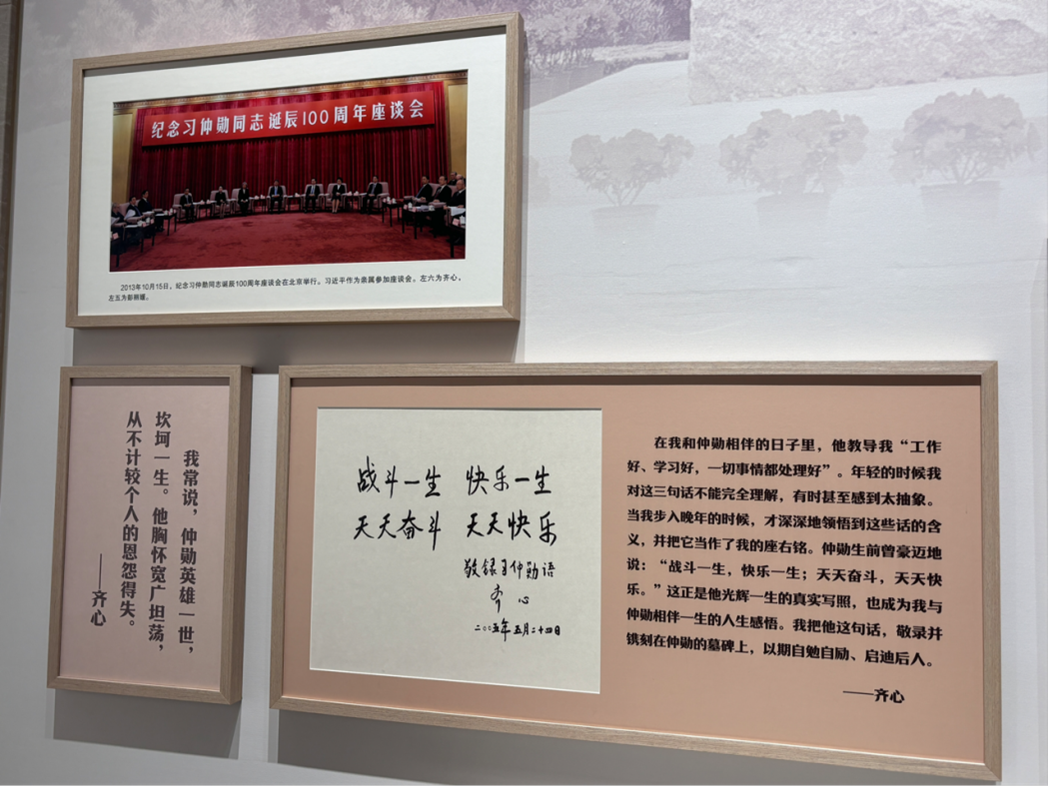 纪念习仲勋同志诞辰100周年座谈会
2013年10月15日，纪念习仲勋同志诞辰100周年座谈会在北京举行。习近平作为亲属参加座谈会。左六为齐心，
左五为彭丽媛。
我常说，仲勋英雄一世，
坎坷一生。他胸怀宽广坦荡，
从不计较个人的恩怨得失。
——齐心
战斗一生 快乐一生
天天奋斗 天天快乐
敬录习仲勋语
齐心
二〇〇五年五月二十四日
在我和仲勋相伴的日子里，他教导我“工作
好、学习好，一切事情都处理好”。年轻的时候我
对这三句话不能完全理解，有时甚至感到太抽象。
当我步入晚年的时候，才深深地领悟到这些话的含
义，并把它当作了我的座右铭。仲勋生前曾豪迈地
说：“战斗一生，快乐一生；天天奋斗，天天快
乐。”这正是他光辉一生的真实写照，也成为我与
仲勋相伴一生的人生感悟。我把他这句话，敬录并
镌刻在仲勋的墓碑上，以期自勉自励、启迪后人。
——齐心